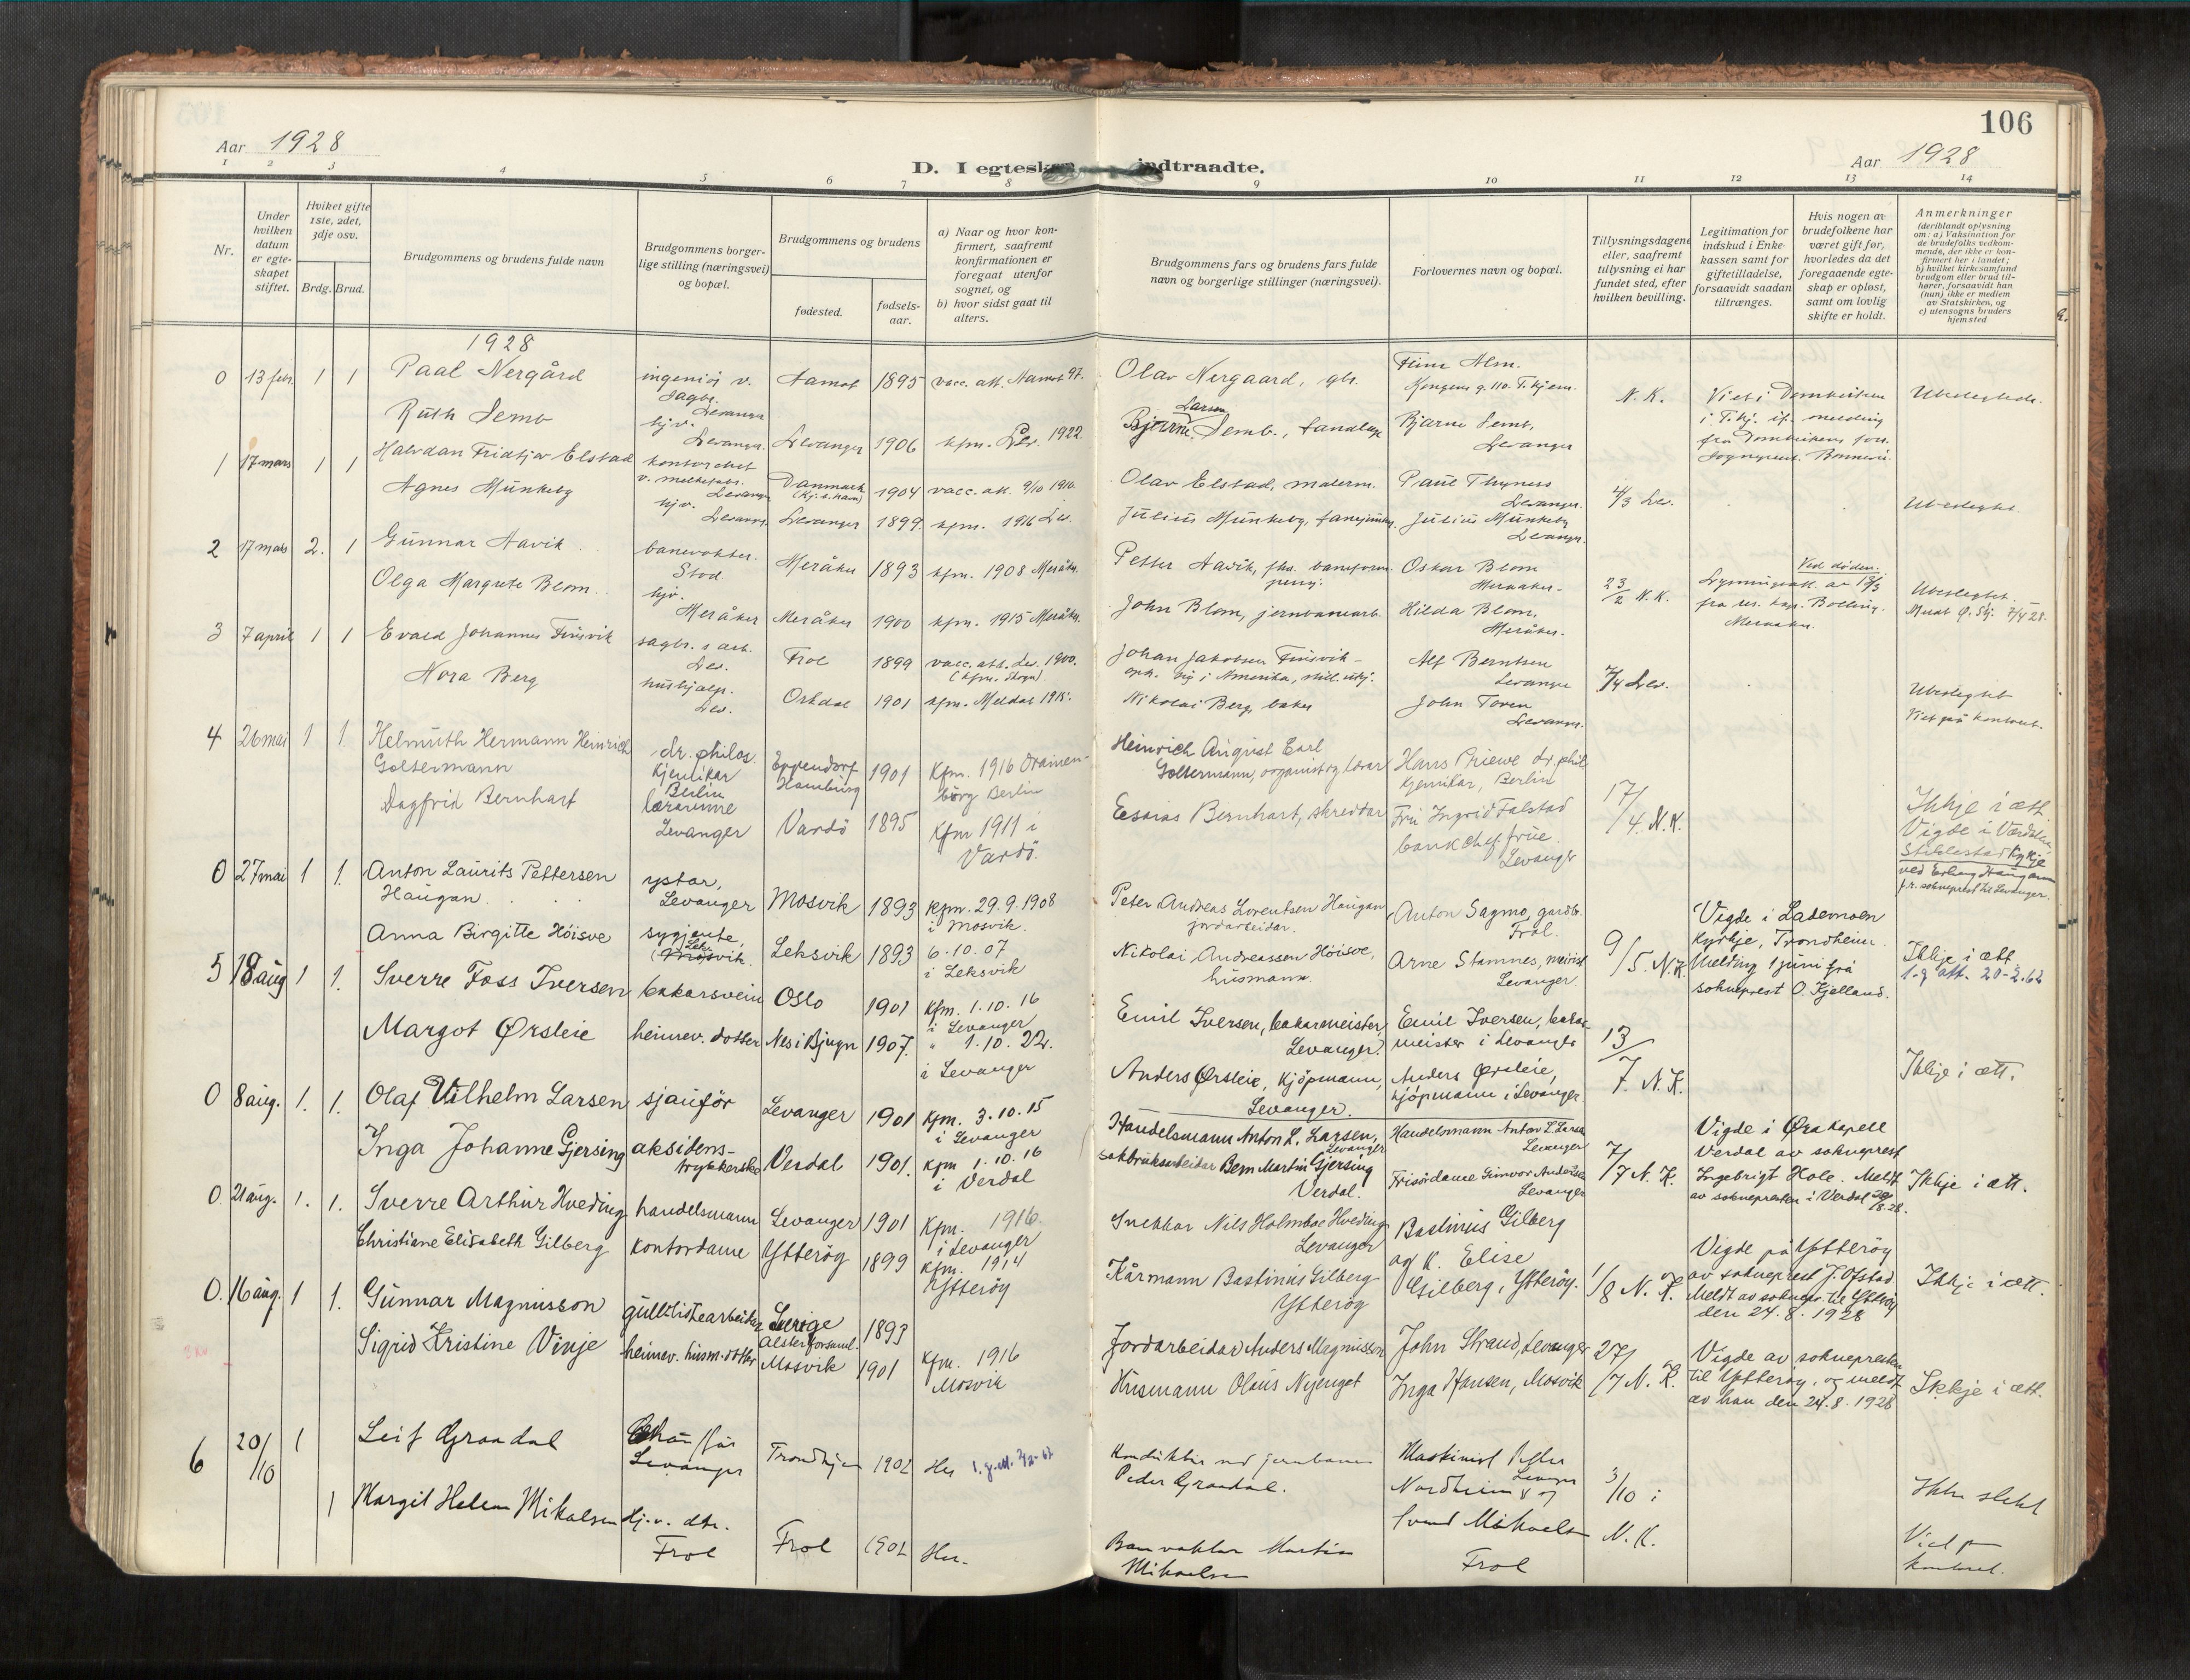 106
Aar 1928
D. I egteskap indtraadte.
Aar 1928
1 2 3 4 5 6 7 8 9 10 11 12 13 14
Nr.
Under hvilken datum er egteskapet stiftet.
Hviket gifte 1ste, 2det, 3dje osv.
Brdg. Brud.
Brudgommens og brudens fulde navn
Brudgommens borgerlige stilling (næringsvei) og bopæl.
Brudgommens og brudens
fødested.
fødselsaar.
a) Naar og hvor konfirmert, saafremt konfirmationen er foregaat utenfor sognet, og
b) hvor sidst gaat til alters.
Brudgommens fars og brudens fars fulde navn og borgerlige stillinger (næringsvei).
Forlovernes navn og bopæl.
Tillysningsdagene eller, saafremt tillysning ei har fundet sted, efter hvilken bevilling.
Legitimation for indskud i Enkekassen samt for giftetilladelse, forsaavidt saadan tiltrænges.
Hvis nogen av brudefolkene har været gift før, hvorledes da det foregaaende egteskap er opløst, samt om lovlig skifte er holdt.
Anmerkninger (deriblandt oplysning om: a) Vaksination for de brudefolks vedkommende, der ikke er konfirmert her i landet; b) hvilket kirkesamfund brudgom eller brud tilhører, forsaavidt han (hun) ikke er medlem av Statskirken, og c) utensogns bruders hjemsted
1928
0 13 febr. 1 1 Paal Nergård ingeniør v. Levanger Aamot 1895 vacc. att. Aamot 97. Olav Nergaard, gbr. Kongens g. 110. T.hjem. N. K. Viet i Domkirken i T.hj.
Ruth Semb hjv. Levanger Levanger 1906 kfm. Lev. 1922 Bjarne Larsen Semb, tandlæge Bjarne Semb, Levanger
1 17 mars 1 1 Halvdan Fridtjov Elstad Levanger Danmark 1904 vacc. att. 9/10 1916 Olav Elstad, malerm. Paul Thyness Levanger. 4/3 Lev. Ubeslegtet
Agnes Munkeby hjv. Levanger Levanger 1899 kfm. 1916 Lev. Julius Munkeby, Julius Munkeby Levanger.
2 17 mars 2. 1 Gunnar Aavik banevokter. Stod Meråker 1893 kfm. 1908 Meråker. Petter Aavik, Oskar Blom Meraaker. 23/2 N.K. fra Meraaker. Ved døden. Ubeslegtet.
Olga Margrete Blom hjv. Meråker Meråker 1900 kfm. 1915 Meråker. John Blom, jernbanearb. Hilda Blom, Meråker.
3 7 april 1 1 Evald Johannes Finsvik sagbr.s arb. Lev. Frol 1899 vacc. att. Lev. 1900. Johan Jakobsen Finsvik - oph. sig i Amerika, Alf Berntsen Levanger 7/4 Lev. Ubeslegtet
Nora Berg hushjælp. Lev. Orkdal 1901 kfm. Meldal 1915. Nikolai Berg, baker John Toven Levanger. Viet på kontoret.
4 26 mai 1 1 Helmuth Hermann Heinrich Goltermann dr. philos. kjemikar Berlin Eppendorf Hamburg 1901 Kfm. 1916 Oranienburg Berlin Heinrich August Carl Goltermann, organist og lærar Hans Priewe dr. phil kjemikar, Berlin 17/4. N.K.
Dagfrid Bernhart lærarinne Levanger Vardö 1895 Kfm 1911 i Vardö. Esaias Bernhart, skreddar Fru Ingrid Falstad bankchef frue. Levanger Ikkje i ætt. Vigde i Værdalen, Stiklestad kyrkje
0 27 mai 1 1. Anton Laurits Pettersen Haugan. ystar, Levanger Mosvik 1893 Kfm. 29.9.1908 i Mosvik. Peter Andreas Lorentsen Haugan jordarbeidar. Anton Sagmo, gardb. Frol. 9/5. N.K. Vigde i Lademoen kyrkje, Trondheim. Melding 1 juni frå sokneprest O. Kjelland. Ikkje i ætt
Anna Birgitte Höisve sygjente, Leksvik 1893 6.10.07 i Leksvik Nikolai Andreassen Höisve, husmann. Arne Stamnes, meirist Levanger 1.g att. 20-2.62
5 18 aug 1 1. Sverre Foss Iversen bakarsvein Oslo 1901 Kfm. 1.10.16 i Levanger Emil Iversen, bakarmeister, Levanger. Emil Iversen, bakarmeister i Levanger 13/7. N.K.
Margot Ørsleie heimev. dotter Nes i Bjugn 1907. " 1.10.22. i Levanger Anders Ørsleie, Kjöpmann, Levanger. Anders Ørsleie, kjöpmann i Levanger Ikkje i ætt.
0 8 aug. 1. 1. Olaf Vilhelm Larsen sjauför Levanger 1901 Kfm. 3.10.15 i Levanger Handelsmann Anton L. Larsen, Levanger Handelsmann Anton L. Larsen Levanger 7/7 N.K. Vigde i Øra kapell Verdal av sokneprest Ingebrigt Hole. Meldt av soknepresten i Verdal
Inga Johanne Gjersing aksidens-trykkerske Verdal 1901. Kfm 1.10.16 i Verdal Bern Martin Gjersing Verdal. Frisördame Gunvor Andersen Levanger Ikkje i ætt.
0. 21 aug. 1. 1. Sverre Arthur Hveding handelsmann Levanger 1901 Kfm. 1916. i Levanger Snekkar Nils Holmboe Hveding Levanger Bastinius Gilberg og K. Elise Gilberg, Ytteröy. 1/8 N.K. Vigde på Ytteröy av sokneprest J. Ofstad Meldt av soknepr. til Ytteröy den 24.8.1928 Ikkje i ætt.
Christiane Elisabeth Gilberg kontordame Ytteröy 1899 Kfm. 1914 Ytteröy Kårmann Bastinius Gilberg Ytteröy
0. 16 aug. 1 1. Gunnar Magnusson gullistearbeidar Sverige Alster forsaml. 1893 Jordarbeidar Anders Magnusson John Strand, Levanger 27/7 N.K. Vigde av soknepresten til Ytteröy, og meldt av han den 24.8.1928 Ikkje i ætt.
Sigrid Kristine Vinje heimev. husm. dotter Mosvik 1901 Kfm. 1916 Mosvik Husmann Olaus Nyenget Inga Hansen, Mosvik
6 20/10 1 Leif Graadal Levanger Trondhjem 1902 Her Peder Graadal. Maskinist Nordheim 3/10 i N.K. Ikke slekt
1 Margit Helene Mikalsen Hj.v. dtr. Frol Frol 1902 Her. Banevokter Martin Mikaelsen Frol Viet på kontoret.